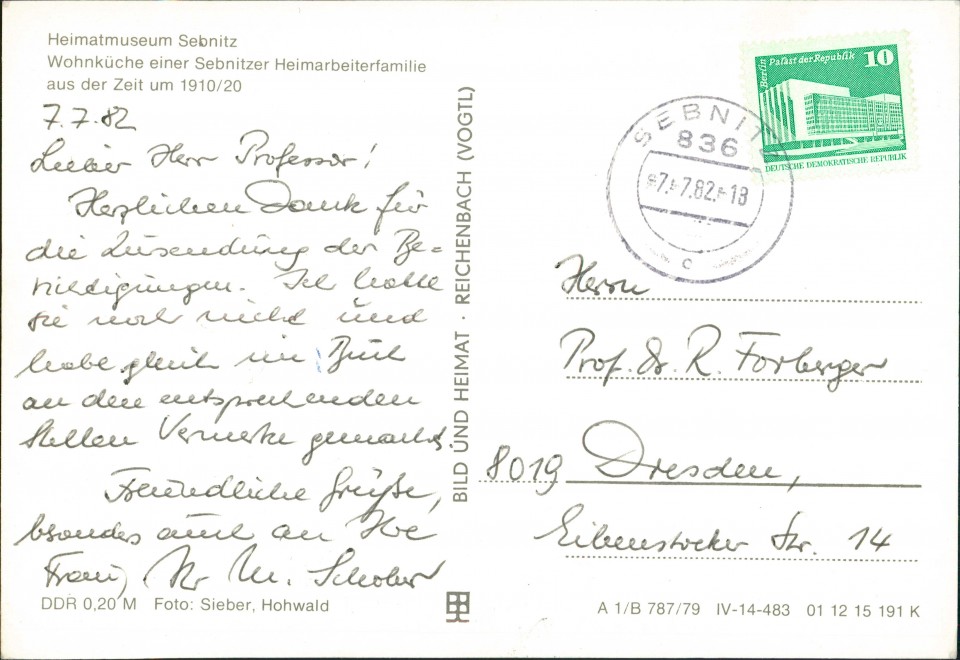 Heimatmuseum Sebnitz
Wohnküche einer Sebnitzer Heimarbeiterfamilie
aus der Zeit um 1910/20
7.7.82
Lieber Herr Professor!
Herzlichen Dank für
die Zusendung der Be=
richtigungen. Ich hatte
sie noch nicht und
habe gleich im Buch
an den entsprechenden
Stellen Vermerke gemacht.
Freundliche Grüße,
besondes auch an Ihre
Frau, Ihr M. Schober
DDR 0,20 M Foto: Sieber, Hohwald
BILD UND HEIMAT · REICHENBACH (VOGTL)
Berlin Palast der Republik 10
DEUTSCHE DEMOKRATISCHE REPUBLIK
SEBNITZ
836
-7.-7.82.-18
c
Herrn
Prof. Dr. R. Forberger
8019 Dresden,
Eibenstocker Str. 14
A 1/B 787/79 IV-14-483 01 12 15 191 K